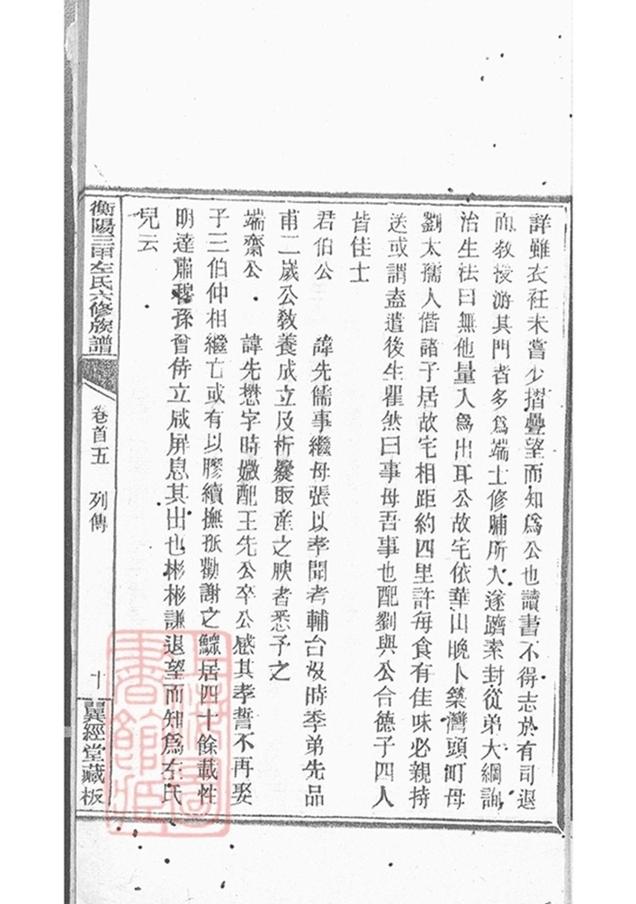 詳雖衣衽未嘗少摺疊望而知爲公也讀書不得志於有司退
而教授游其門者多爲端士修脯所入遂躋素封從弟大綱詢
治生法曰無他量入爲出耳公故宅依華山晚卜築灣頭町母
劉太孺人偕諸子居故宅相距約四里許每食有佳味必親持
送或謂盍遣後生瞿然曰事母吾事也配劉與公合德子四人
皆佳士
君伯公 諱先儒事繼母張以孝聞考輔台歿時季弟先品
甫二歲公敎養成立及析爨取產之腴者悉予之
端齋公 諱先懋字時嫩配王先公卒公感其孝誓不再娶
子三伯仲相繼亡或有以膠續撫孫勸謝之鰥居四十餘載性
明達肅穆孫曾侍立咸屏息其出也彬彬謙退望而知爲左氏
兒云
衡陽三甲左氏六修族譜
卷首五 列傳
十
翼經堂藏板